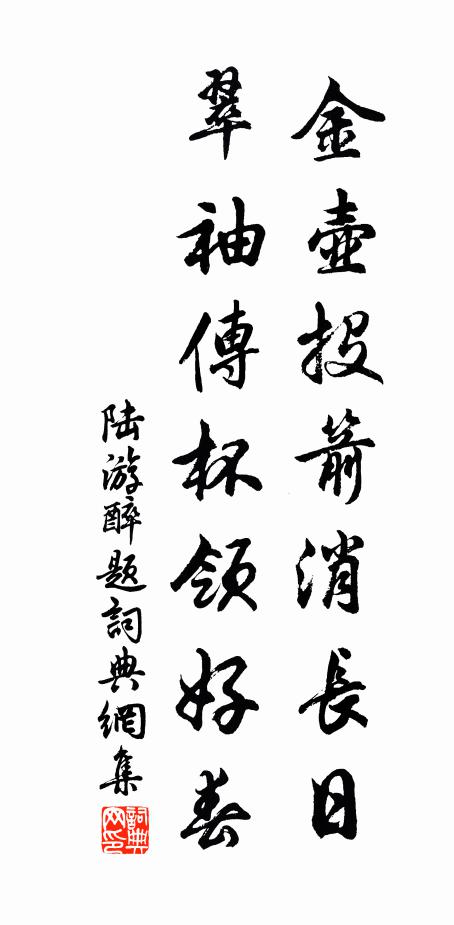 金壺投箭消長日
翠袖傳杯領好春
陸游醉題詞典網集
詞典網印